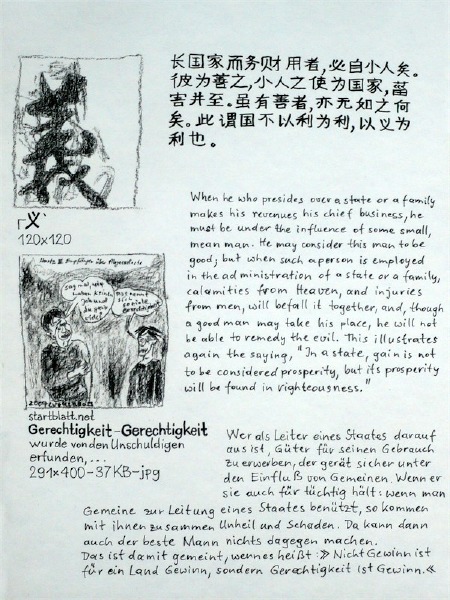 长国家而务财用者，必自小人矣。
彼为善之，小人之使为国家，菑
害并至。虽有善者，亦无如之何
矣。此谓国不以利为利，以义为
利也。
義
「义」
120x120
When he who presides over a state or a family
makes his revenues his chief business, he
must be under the influence of some small,
mean man. He may consider this man to be
good; but when such a person is employed
in the administration of a state or a family,
calamities from Heaven, and injuries
from men, will befall it together, and, though
a good man may take his place, he will not
be able to remedy the evil. This illustrates
again the saying, "In a state, gain is not
to be considered prosperity, but its prosperity
will be found in righteousness."
Hartz IV Empfänger über
sag mal, wir
haben
startblatt.net
Gerechtigkeit-Gerechtigkeit
wurde von den Unschuldigen
erfunden,...
291x400-37KB-jpg
Wer als Leiter eines Staates darauf
aus ist, Güter für seinen Gebrauch
zu erwerben, der gerät sicher unter
den Einfluß von Gemeinen. Wenn er
sie auch für tüchtig hält: wenn man
Gemeine zur Leitung eines Staates benützt, so kommen
mit ihnen zusammen Unheil und Schaden. Da kann dann
auch der beste Mann nichts dagegen machen.
Das ist damit gemeint, wenn es heißt: »Nicht Gewinn ist
für ein Land Gewinn, sondern Gerechtigkeit ist Gewinn.«